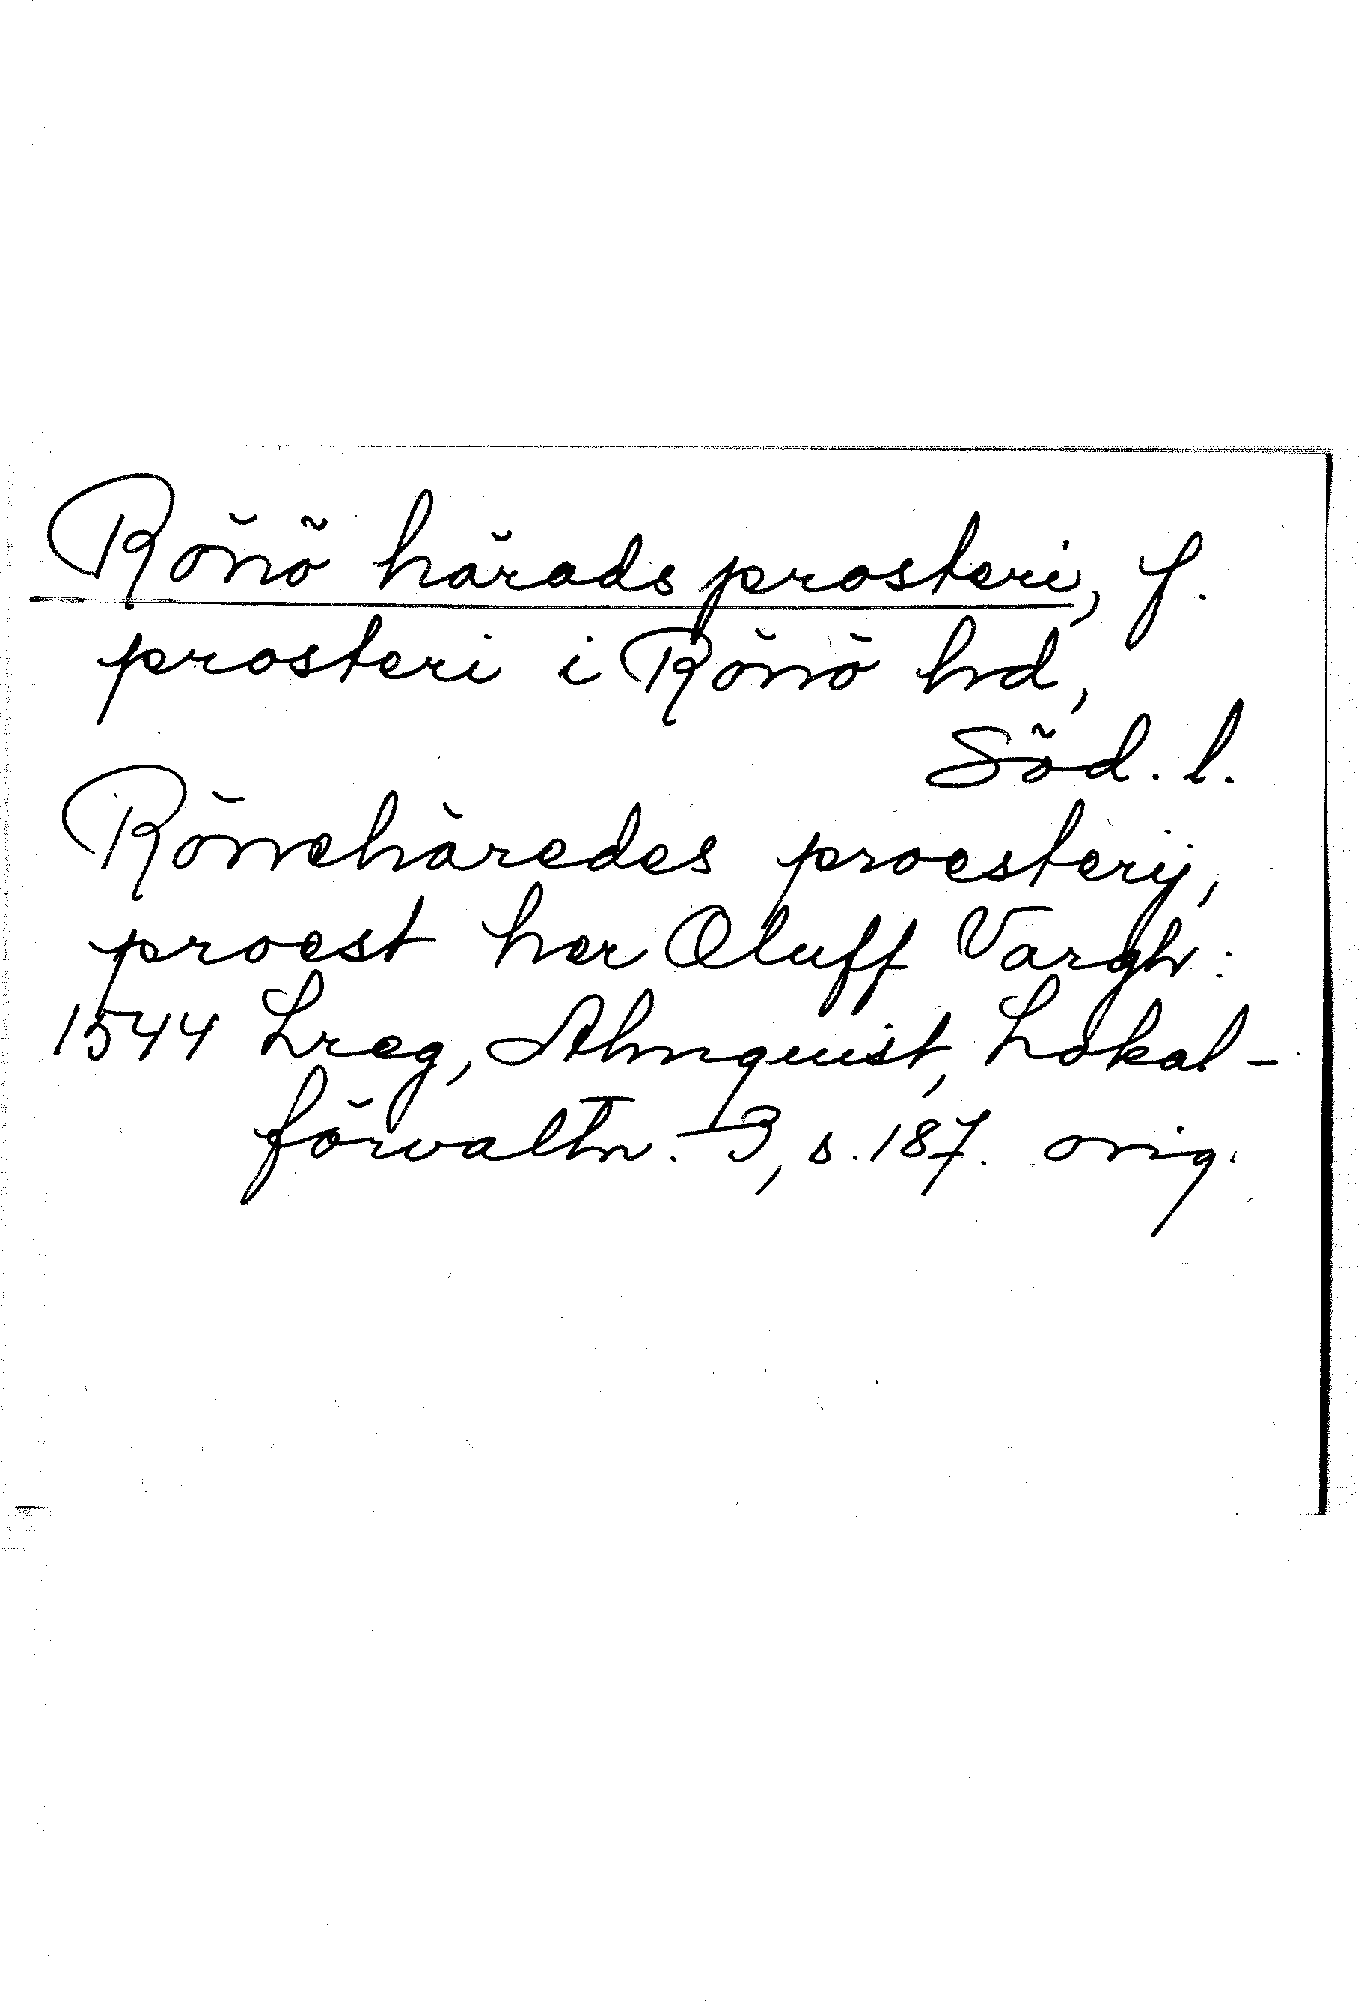 Rönö härads prosteri, f.
prosteri i Rönö hd,
Söd. l.
Rönnehäredes proesterij,
proest her Oluff Vargh:
1544 Lreg, Almquist, Lokal-
förvaltn. 3, s. 187. orig.